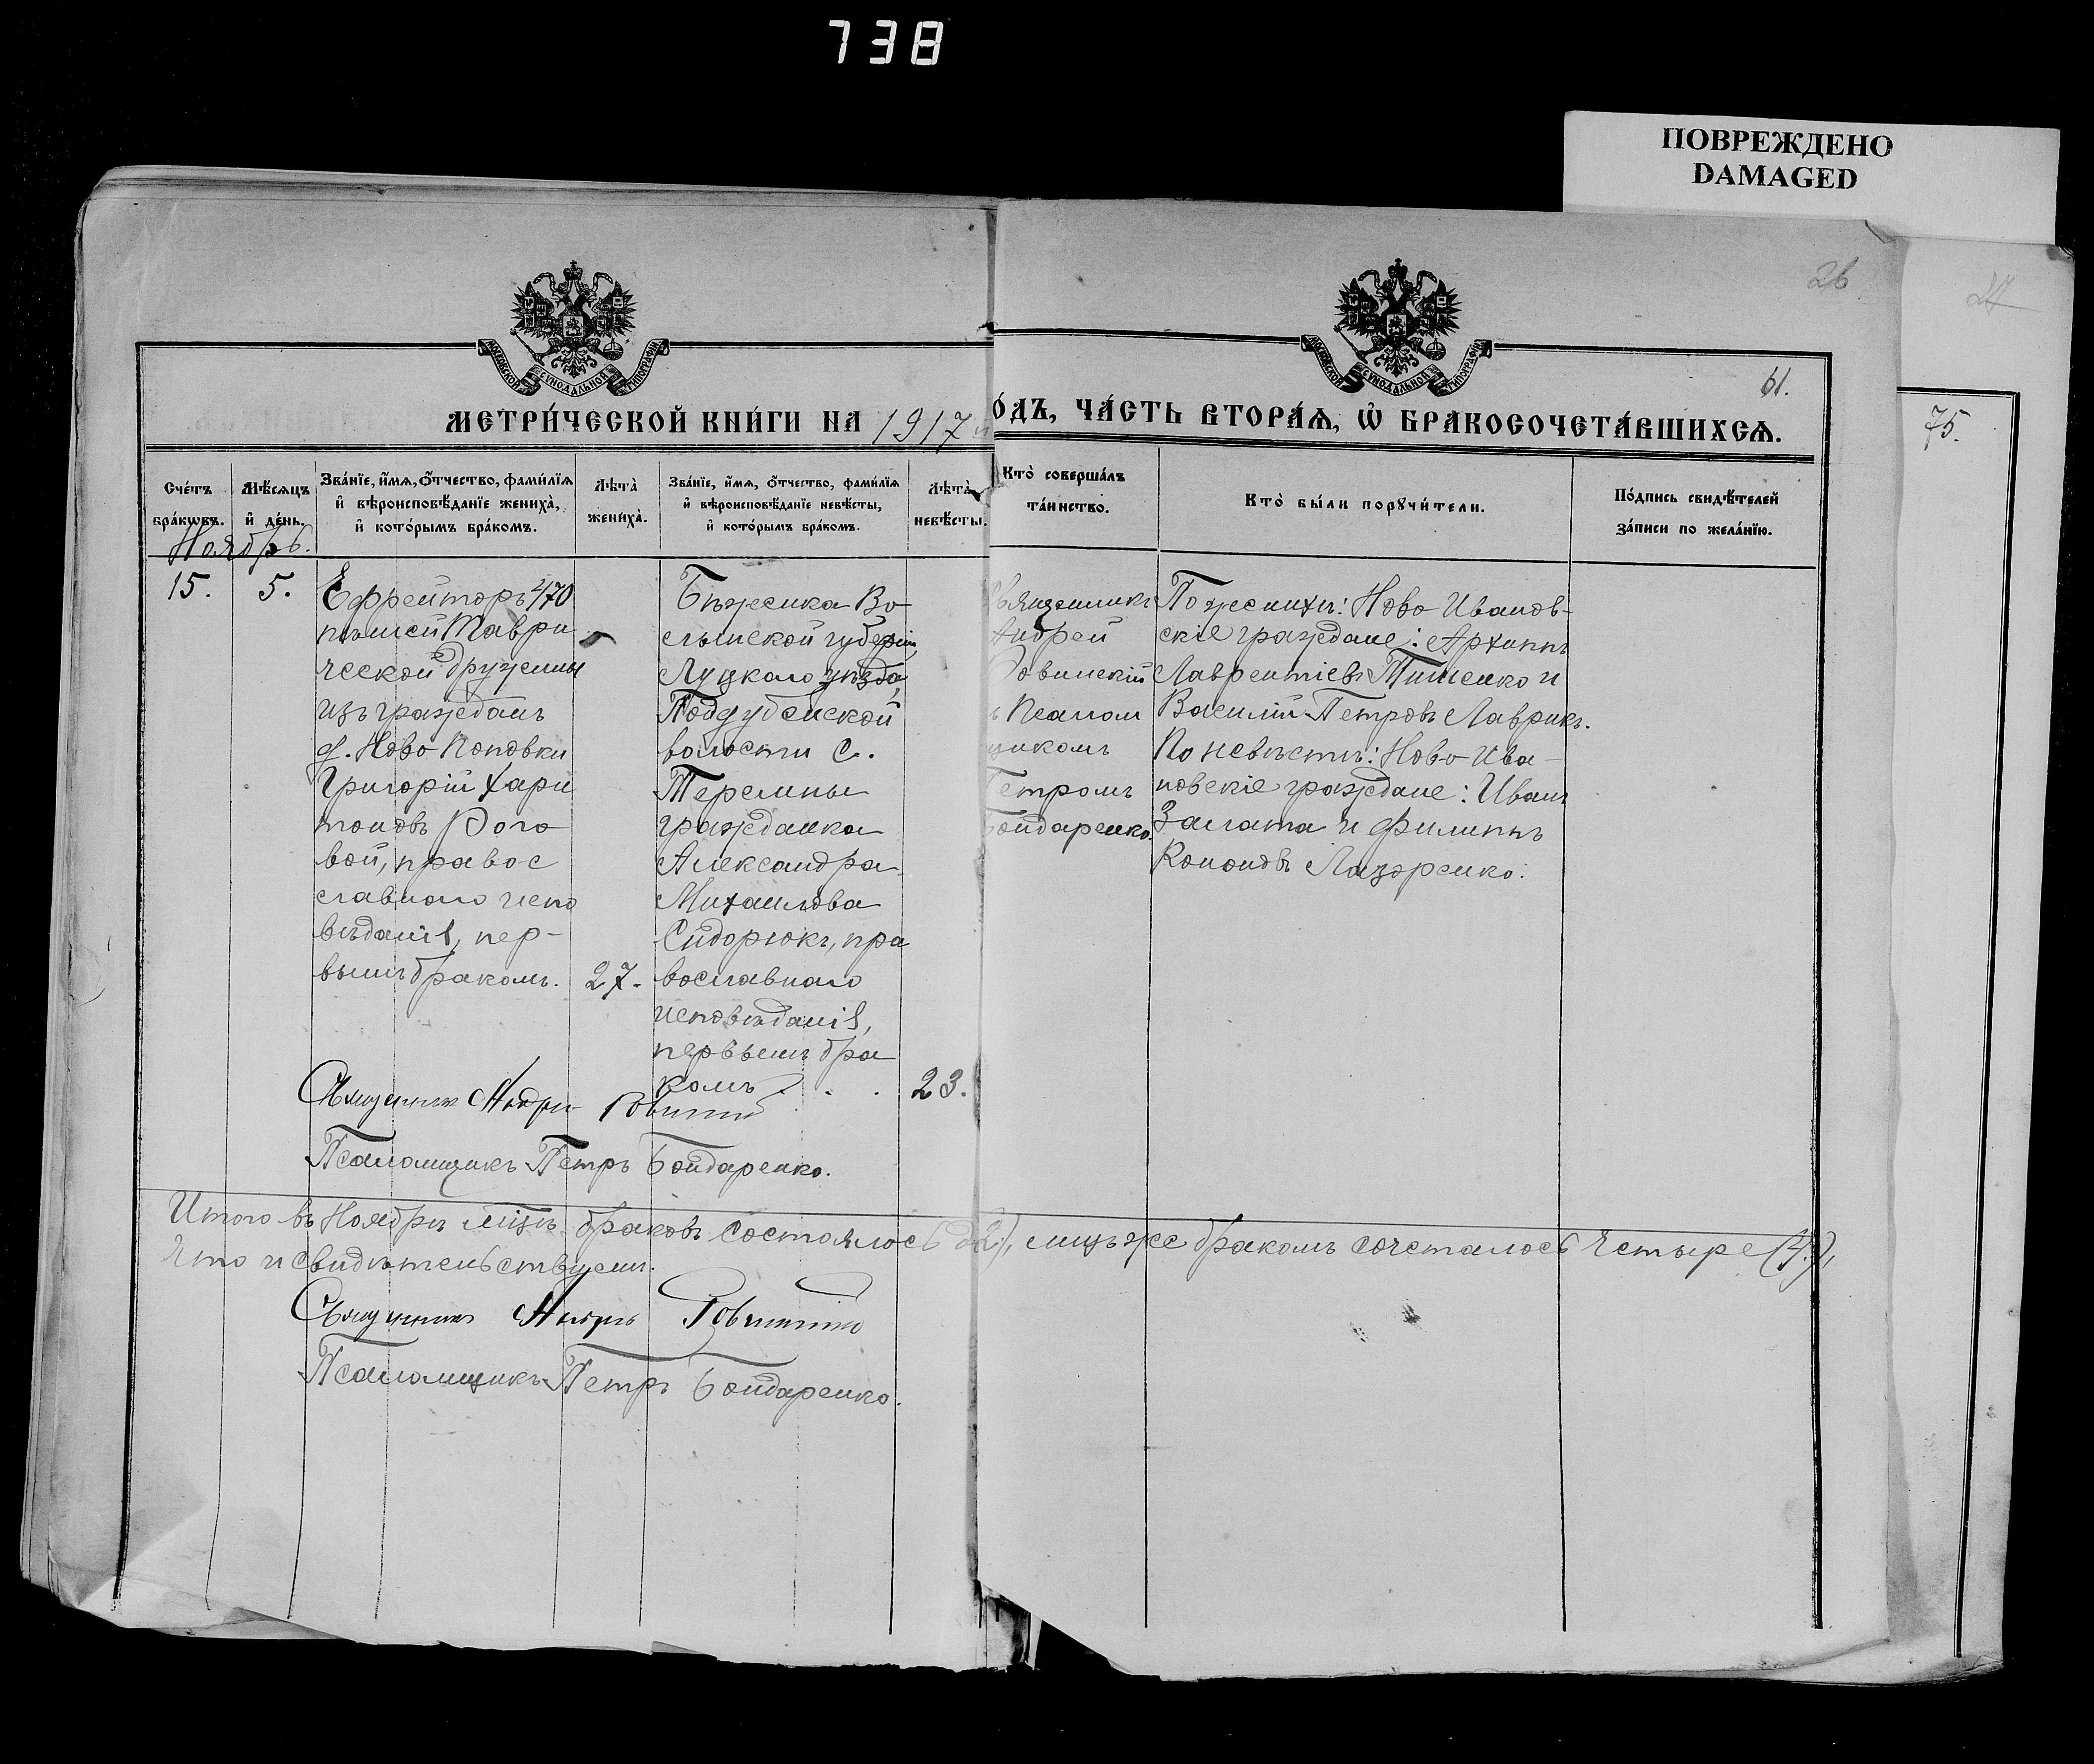 738
ПОВРЕЖДЕНО
DAMAGED
26
МОСКОВСКОЙ СѴНОДАЛЬНОЙ ТИПОГРАФІИ
МОСКОВСКОЙ СѴНОДАЛЬНОЙ ТИПОГРАФІИ
61.
75.
МЕТРИ́ЧЕСКОЙ КНИ́ГИ НА 1917
О́ДЪ, ЧА́СТЬ ВТОРА́Ѧ, Ѽ БРАКОСОЧЕТА́ВШИХСѦ.
Сче́тъ
бра́кѡвъ.
Мѣ́сѧцъ
и҆ де́нь.
Зва́нїе, и҆́мѧ, ѻ҆́тчество, фами́лїѧ
и҆ вѣроисповѣ́данїе жениха̀,
и҆ кото́рымъ бра́комъ.
Лѣта̀
жениха̀.
Зва́нїе, и҆́мѧ, ѻ҆́тчество, фами́лїѧ
и҆ вѣроисповѣ́данїе невѣ́сты,
и҆ кото́рымъ бра́комъ.
Лѣта̀
невѣ́сты.
Кто̀ соверша́лъ
та́инство.
Кто̀ бы́ли порꙋчи́тели.
По́дпись свидѣ́телей
за́писи по жела́нїю.
Ноябрь.
15.
5.
Ефрейторъ 470
пѣшей Таври
ческой дружины
изъ гражданъ
д. Ново Поповки
Григорій Хари
тоновъ Рого
вой, правос
славнаго испо
вѣданія, пер-
вымъ бракомъ.
27.
Бѣженка Во-
лынской губерніи,
Луцкаго уѣзда,
Поддубенской
волости с.
Теремны
гражданка
Александра
Михаилова
Сидорюкъ, пра
вославнаго
исповѣданія,
первымъ бра
комъ . . .
23.
Священникъ
Андрей
Ровинскій
ъ Псалом
щикомъ
Петромъ
Бондаренко.
По женихѣ: Ново Иванов-
скіе граждане: Архиппъ
Лаврентіевъ Тищенко и
Василій Петровъ Лаврикъ.
По невѣстѣ: Ново-Ива-
новскіе граждане: Иванъ
Залата и Филиппъ
Кононовъ Лазоренко.
Священникъ Андрей Ровинскій
Псаломщикъ Петръ Бондаренко.
Итого въ Ноябрѣ мѣсцѣ браковъ состоялось 2), лицъ же бракомъ сочеталось четыре (4),
что и свидѣтельствуемъ.
Священникъ Андрей Ровинскій
Псаломщикъ Петръ Бондаренко.